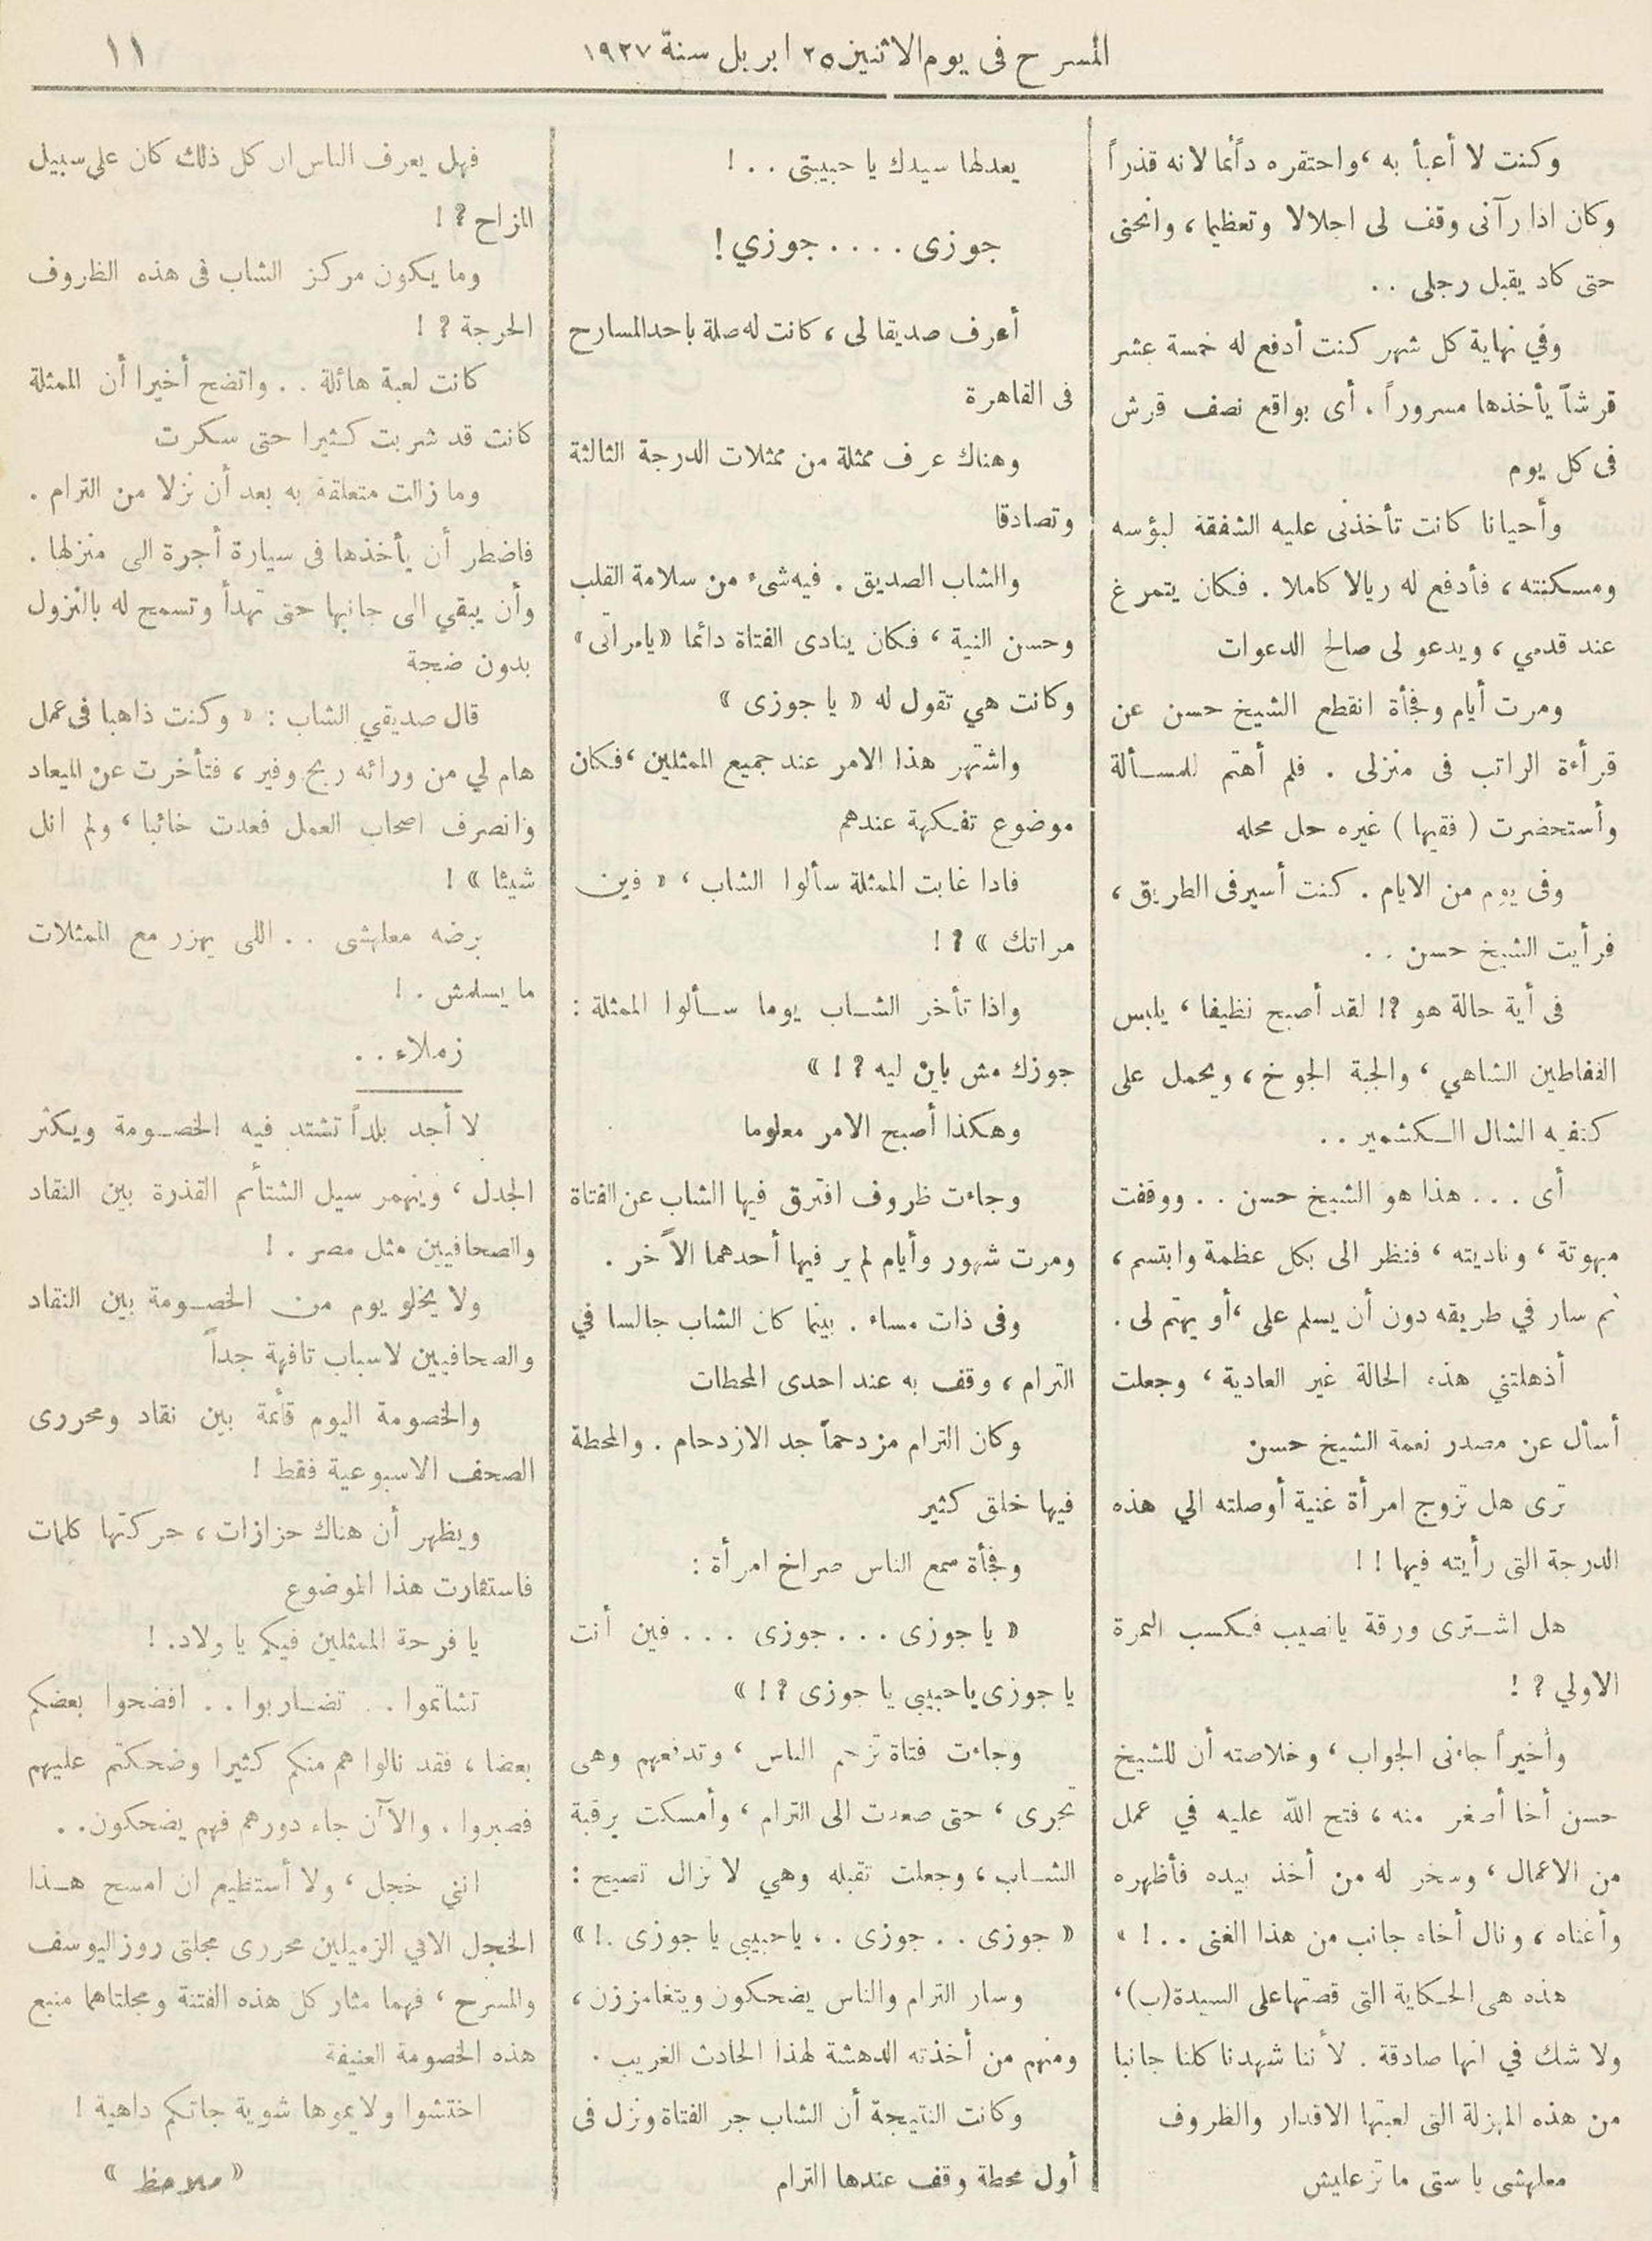 المسرح فى يوم الاثنين ٢٥ ابريل سنة ١٩٢٧
١١
وكنت لا أعبأ به، واحتقره دأئما لانه قذراً
وكان اذا رآنى وقف لى اجلالا وتعظيما، وانحنى
حتى كاد يقبل رجلى . .
وفي نهاية كل شهر كنت أدفع له خمسة عشر
قرشاً يأخذها مسروراً، أى بواقع نصف قرش
فى كل يوم
وأحيانا كانت تأخذنى عليه الشفقة لبؤسه
ومسكنته، فأدفع له ريالا كاملا . فكان يتمرغ
عند قدمي، ويدعو لى صالح الدعوات
ومرت أيام وفجأة انقطع الشيخ حسن عن
قرأءة الراتب فى منزلى . فلم أهتم للمسألة
وأستحضرت ( فقيها ) غيره حل محله
وفى يوم من الايام . كنت أسير فى الطريق،
فرأيت الشيخ حسن . .
فى أية حالة هو ?! لقد أصبح نظيفا، يلبس
القفاطين الشاهي، والجبة الجوخ، ويحمل على
كتفيه الشال الكشمير . .
أى . . . هذا هو الشيخ حسن . . ووقفت
مبهوتة، وناديته، فنظر الى بكل عظمة وابتسم،
ثم سار في طريقه دون أن يسلم على، أو يهتم لى .
أذهلتني هذه الحالة غير العادية، وجعلت
أسأل عن مصدر نعمة الشيخ حسن
ترى هل تزوج امرأة غنية أوصلته الي هذه
الدرجة التى رأيته فيها ! !
هل اشترى ورقة يانصيب فكسب النمرة
الاولي ? !
وأخيراً جاءنى الجواب، وخلاصته أن للشيخ
حسن أخا أصغر منه، فتح الله عليه في عمل
من الاعمال، وسخر له من أخذ بيده فأظهره
وأغناه، ونال أخاه جانب من هذا الغنى . . ! »
هذه هى الحكاية التى قصتها على السيدة (ب)،
ولا شك في انها صادقة . لأننا شهدنا كلنا جانبا
من هذه المهزلة التى لعبتها الاقدار والظروف
معلهشى يا ستى ما تزعليش
يعدلها سيدك يا حبيبتى . . !
جوزى . . . . جوزي !
أعرف صديقا لى، كانت له صلة باحد المسارح
فى القاهرة
وهناك عرف ممثلة من ممثلات الدرجة الثالثة
وتصادقا
والشاب الصديق . فيه شىء من سلامة القلب
وحسن النية، فكان ينادى الفتاة دائما «يامراتى»
وكانت هي تقول له « يا جوزى »
واشتهر هذا الامر عند جميع الممثلين، فكان
موضوع تفكهة عندهم
فاذا غابت الممثلة سألوا الشاب، « فين
مراتك » ? !
واذا تأخر الشاب يوما سألوا الممثلة :
جوزك مش باين ليه ? ! »
وهكذا أصبح الامر معلوما
وجاءت ظروف افترق فيها الشاب عن الفتاة
ومرت شهور وأيام لم ير فيها أحدهما الآخر .
وفى ذات مساء . بينما كان الشاب جالسا في
الترام، وقف به عند احدى المحطات
وكان الترام مزدحماً جد الازدحام . والمحطة
فيها خلق كثير
وفجأة سمع الناس صراخ امرأة :
« يا جوزى . . . جوزى . . . فين أنت
يا جوزى ياحبيبى يا جوزى ? ! »
وجاءت فتاة تزحم الناس، وتدفعهم وهى
تجرى، حتى صعدت الى الترام، وأمسكت برقبة
الشاب، وجعلت تقبله وهي لا تزال تصيح :
« جوزى . . جوزى . . ياحبيبى يا جوزى . ! »
وسار الترام والناس يضحكون ويتغامزون،
ومنهم من أخذته الدهشة لهذا الحادث الغريب .
وكانت النتيجة أن الشاب جر الفتاة ونزل فى
أول محطة وقف عندها الترام
فهل يعرف الناس ان كل ذلك كان على سبيل
المزاح ? !
وما يكون مركز الشاب فى هذه الظروف
الحرجة ? !
كانت لعبة هائلة . . واتضح أخيرا أن الممثلة
كانت قد شربت كثيرا حتى سكرت
وما زالت متعلقة به بعد أن نزلا من الترام .
فاضطر أن يأخذها فى سيارة أجرة الى منزلها .
وأن يبقي الى جانبها حتى تهدأ وتسمح له بالنزول
بدون ضجة
قال صديقي الشاب : « وكنت ذاهبا فى عمل
هام لي من ورائه ربح وفير، فتأخرت عن الميعاد
وانصرف اصحاب العمل فعدت خائبا، ولم انل
شيئا » !
برضه معلهشى . . اللى يهزر مع الممثلات
ما يسلمش . !
زملاء . .
لا أجد بلداً تشتد فيه الخصومة ويكثر
الجدل، وينهمر سيل الشتأئم القذرة بين النقاد
والصحافيين مثل مصر . !
ولا يخلو يوم من الخصومة بين النقاد
والصحافيين لاسباب تافهة جداً
والخصومة اليوم قأئمة بين نقاد ومحررى
الصحف الاسبوعية فقط !
ويظهر أن هناك حزازات، حركتها كلمات
فاستثارت هذا الموضوع
يا فرحة الممثلين فيكم يا ولاد. !
تشاتموا . . تضاربوا . . افضحوا بعضكم
بعضا، فقد نالوا هم منكم كثيرا وضحكتم عليهم
فصبروا . والآن جاء دورهم فهم يضحكون. .
انني خجل، ولا أستطيع ان امسح هذا
الخجل الا في الزميلين محررى مجلتى روز اليوسف
والمسرح، فهما مثار كل هذه الفتنة ومجلتاهما منبع
هذه الخصومة العنيفة
اختشوا ولايموها شوية جاتكم داهية !
« ملاحظ »